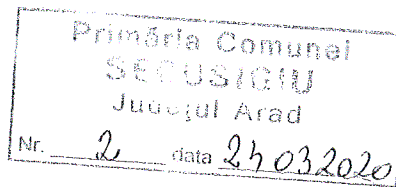 Primăria Comunei
SECUSIGIU
Județul Arad
Nr. 2 data 24 03 2020